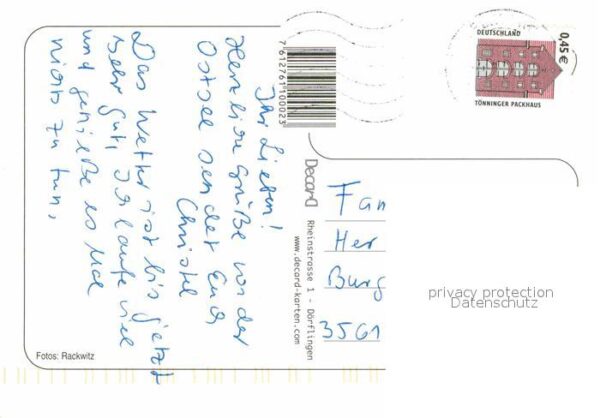 Ihr Lieben!
Herzliche Grüße von der
Ostsee sendet Euch
Christel
Das Wetter ist bis jetzt
sehr gut, Ich laufe viel
und genieße es mal
nichts zu tun,
Fotos: Rackwitz
7612761100023
Decard
Rheinstrasse 1 - Dörflingen
www.decard-karten.com
DEUTSCHLAND
0,45€
TÖNNINGER PACKHAUS
Fam
Her
Burg
3561
privacy protection
Datenschutz